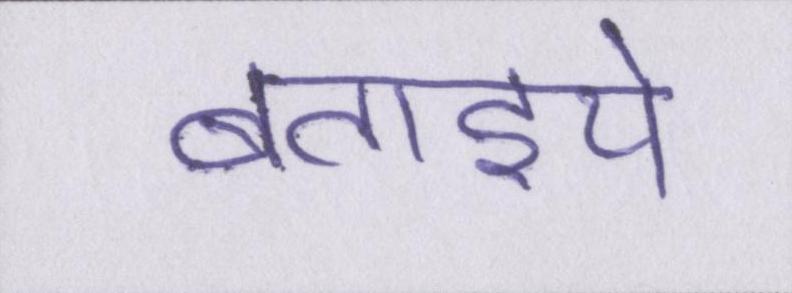 बताइये